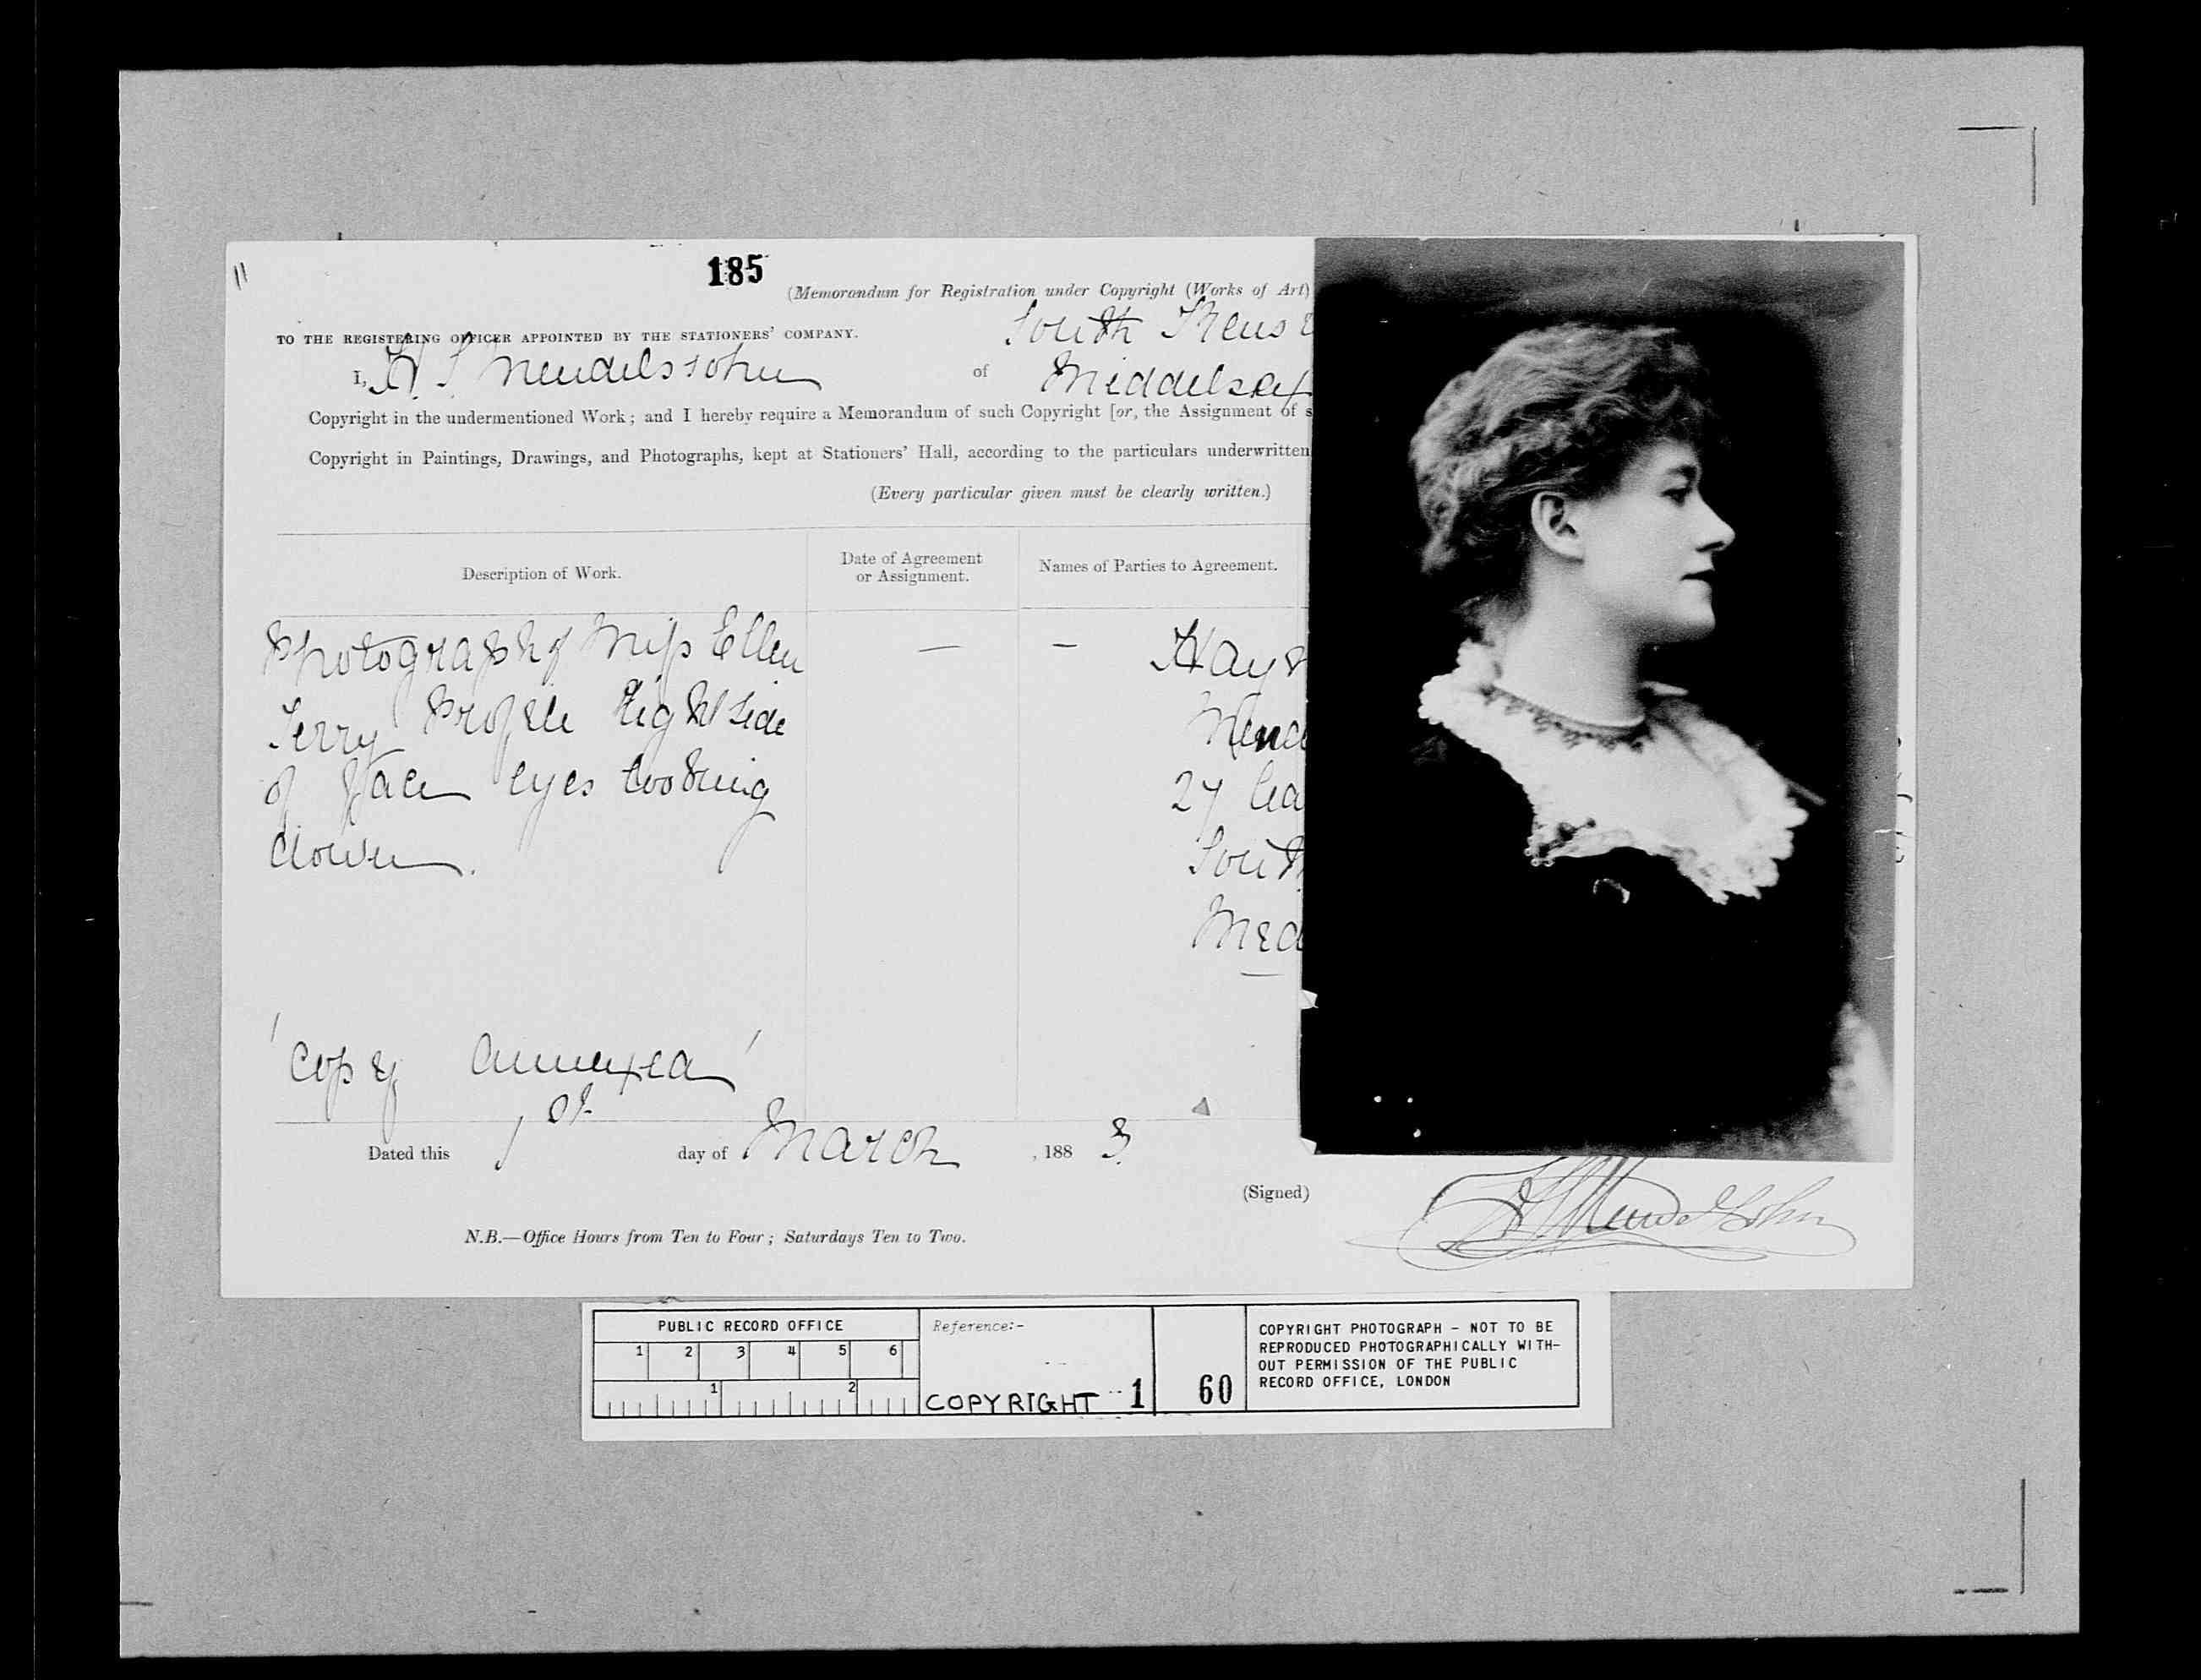 185
(Memorandum for Registration under Copyright (Works of Art)
South Kens
TO THE REGISTERING OFFICER APPOINTED BY THE STATIONERS' COMPANY.
I, H. S. Mendelssohn of Middelsex
Copyright in the undermentioned Work; and I hereby require a Memorandum of such Copyright [or, the Assignment of s
Copyright in Paintings, Drawings, and Photographs, kept at Stationers' Hall, according to the particulars underwritten
(Every particular given must be clearly written.)
Description of Work.
Date of Agreement
or Assignment.
Names of Parties to Agreement.
Photograph of Miss Ellen
Terry Profile Right side
of face eyes looking
down.
— —
Hay
Mend
27 Ca
South
Mid
'Copy annexed'
Dated this 1st day of March, 1883
(Signed) H S Mendelssohn
N.B.—Office Hours from Ten to Four; Saturdays Ten to Two.
PUBLIC RECORD OFFICE
1 2 3 4 5 6
1 2
Reference:-
COPYRIGHT 1
60
COPYRIGHT PHOTOGRAPH - NOT TO BE
REPRODUCED PHOTOGRAPHICALLY WITH-
OUT PERMISSION OF THE PUBLIC
RECORD OFFICE, LONDON